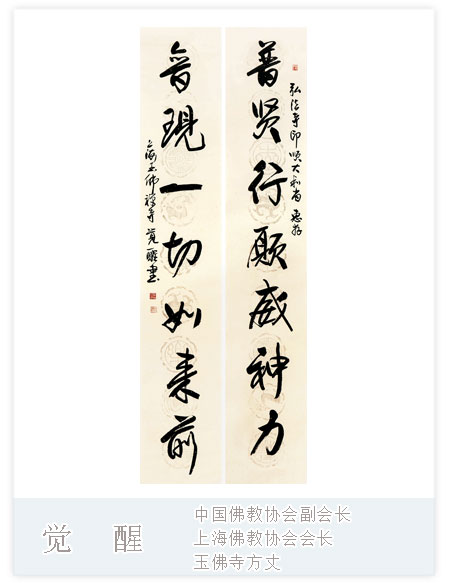 普贤行願威神力
弘法寺印顺大和尚惠存
普現一切如来前
上海玉佛禅寺觉醒书
觉醒
中国佛教协会副会长
上海佛教协会会长
玉佛寺方丈